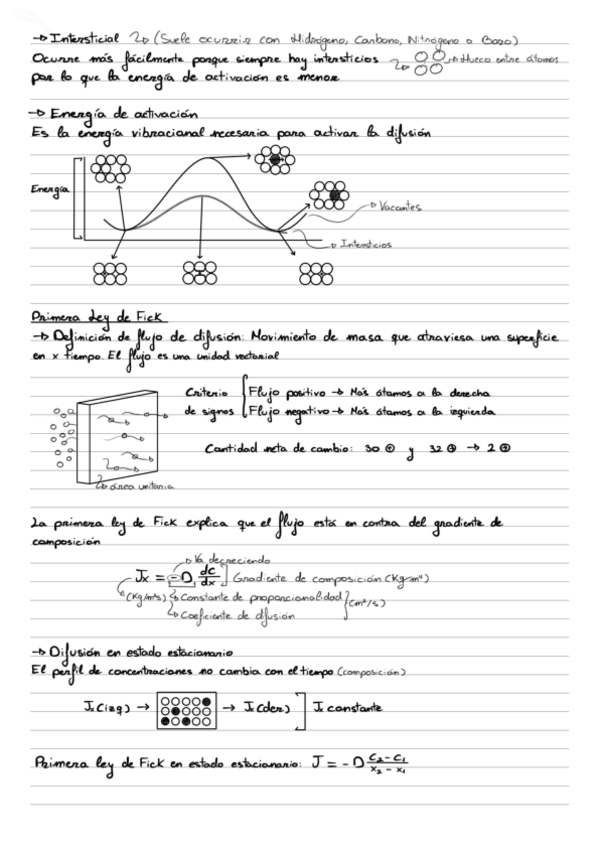 → Intersticial (Suele ocurrir con Hidrógeno, Carbono, Nitrógeno o Boro)
Ocurre más fácilmente porque siempre hay intersticios → Hueco entre átomos
por lo que la energía de activación es menor
→ Energía de activación
Es la energía vibracional necesaria para activar la difusión
Energía
→ Vacantes
→ Intersticios
Primera Ley de Fick
→ Definición de flujo de difusión: Movimiento de masa que atraviesa una superficie
en x tiempo. El flujo es una unidad vectorial
Criterio { Flujo positivo → Más átomos a la derecha
de signos { Flujo negativo → Más átomos a la izquierda
Cantidad neta de cambio: 30 ⊕ y 32 ⊕ → 2 ⊕
→ área unitaria
La primera ley de Fick explica que el flujo está en contra del gradiente de
composición
→ Va decreciendo
Jx = -D dc/dx ] Gradiente de composición (Kg·m⁴)
(Kg/m²s) → Constante de proporcionalidad } (m²/s)
→ Coeficiente de difusión
→ Difusión en estado estacionario
El perfil de concentraciones no cambia con el tiempo (composición)
Jx(izq) → → J(der) ] Jx constante
Primera ley de Fick en estado estacionario: J = -D C₂-C₁ / x₂-x₁